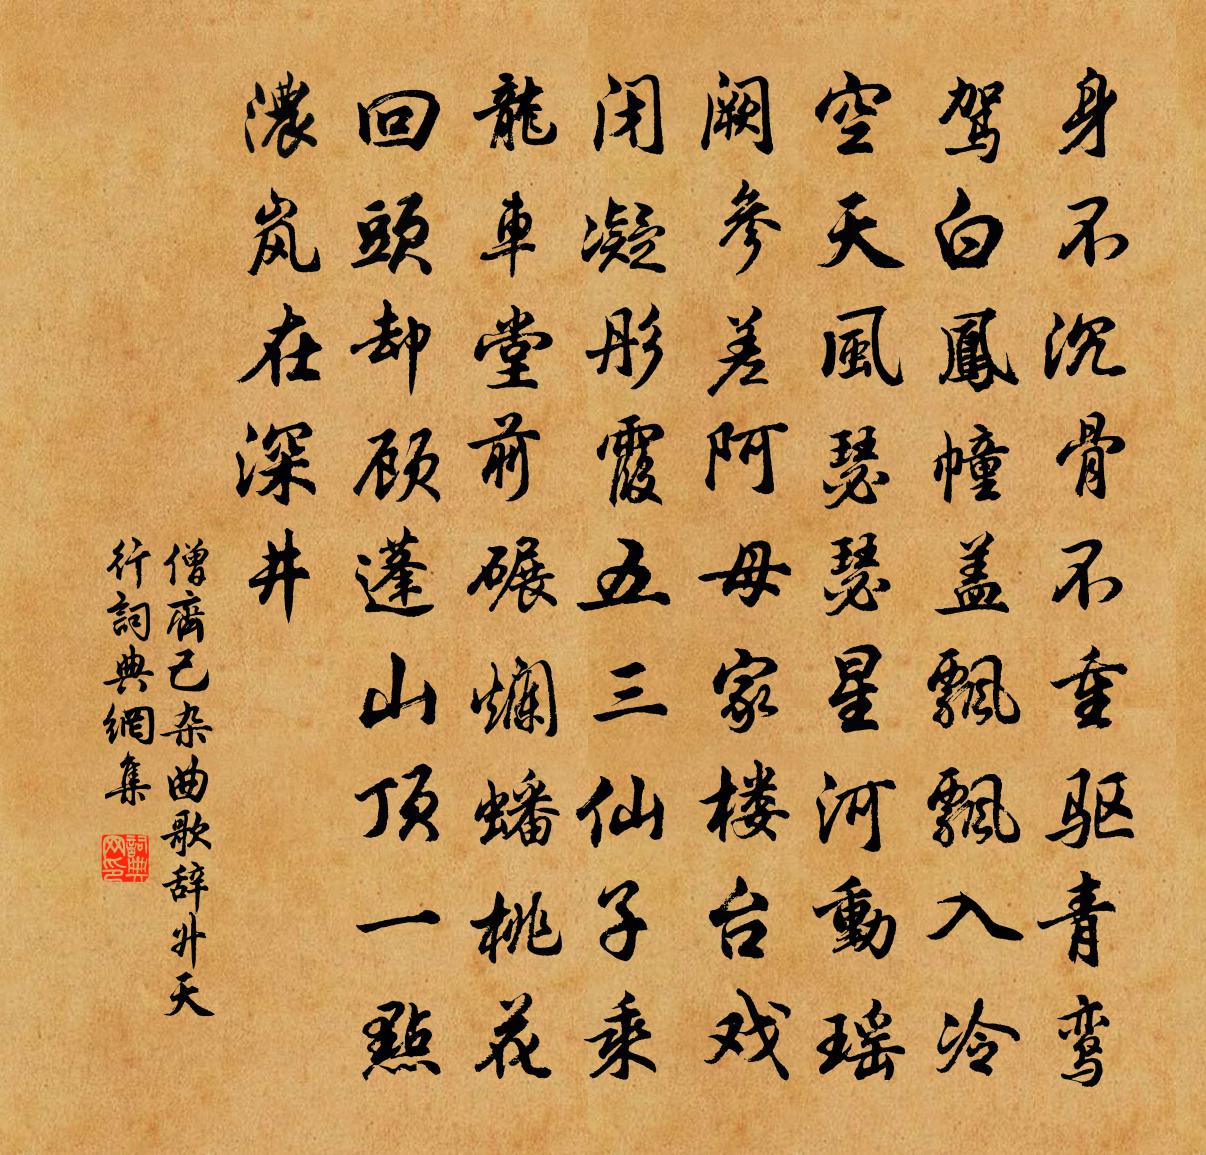 身不沉骨不重驱青鸾
驾白鳳幢盖飘飘入冷
空天風瑟瑟星河動瑶
阙參差阿母家楼台戏
闭凝彤霞五三仙子乘
龍車堂前碾爛蟠桃花
回頭却顾蓬山顶一點
濃岚在深井
僧齊己杂曲歌辞升天
行詞典網集
詞典
网印